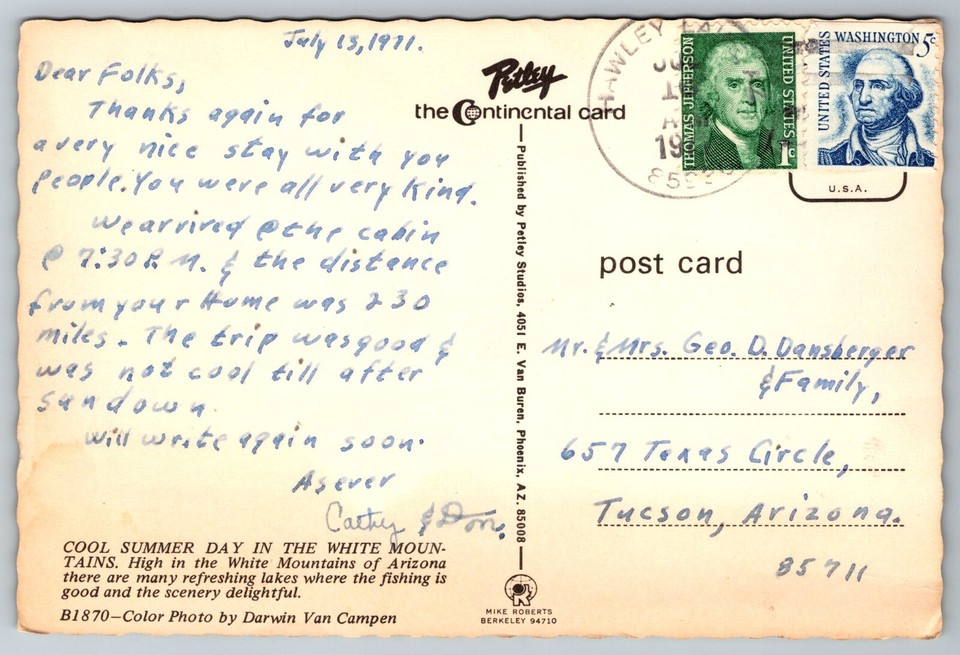 July 13, 1971.
Dear Folks,
Thanks again for
a very nice stay with you
people. You were all very kind.
We arrived @ the cabin
@ 7:30 P.M. & the distance
from your Home was 230
miles. The trip was good &
was not cool till after
sundown.
Will write again soon.
As ever
Cathy & Don.
COOL SUMMER DAY IN THE WHITE MOUN-
TAINS. High in the White Mountains of Arizona
there are many refreshing lakes where the fishing is
good and the scenery delightful.
B1870—Color Photo by Darwin Van Campen
Petley
the Continental card
Published by Petley Studios, 4051 E. Van Buren, Phoenix, AZ. 85008
MIKE ROBERTS
BERKELEY 94710
HAWLEY
19
THOMAS JEFFERSON
UNITED STATES
1c
UNITED STATES
WASHINGTON 5c
U.S.A.
post card
Mr. & Mrs. Geo. D. Dansberger
& Family,
657 Texas Circle,
Tucson, Arizona.
85711